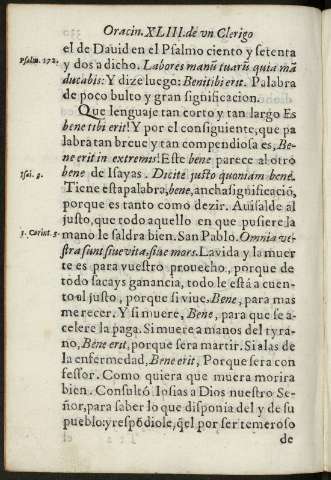 Oracin. XLIII. de vn Clerigo
el de Dauid en el Psalmo ciento y setenta
Psalm. 172.
y dos a dicho. Labores manuũ tuarũ quia mã
ducabis: Y dize luego: Benitibi erit. Palabra
de poco bulto y gran significacion.
Que lenguaje tan corto y tan largo Es
bene tibi erit! Y por el consiguiente, que pa
labra tan breue y tan compendiosa es, Be-
ne erit in extremis! Este bene parece al otro
Isai. 3.
bene de Isayas. Dicite justo quoniam bene.
Tiene esta palabra, bene, ancha significació,
porque es tanto como dezir. Auisalde al
justo, que todo aquello en que pusiere la
mano le saldra bien. San Pablo. Omnia ve-
1. Corint. 3.
stra sunt siue vita, siue mors. La vida y la muer
te es para vuestro prouecho, porque de
todo sacays ganancia, todo le està a cuen-
to al justo, porque si viue, Bene, para mas
merecer. Y si muere, Bene, para que se a-
celere la paga. Si muere a manos del tyra-
no, Bene erit, porque sera martir. Si a las de
la enfermedad, Bene erit, Porque sera con
fessor. Como quiera que muera morira
bien. Consultó Iosias a Dios nuestro Se-
ñor, para saber lo que disponia del y de su
pueblo: y respõdiole, q̃ el por ser temeroso
de